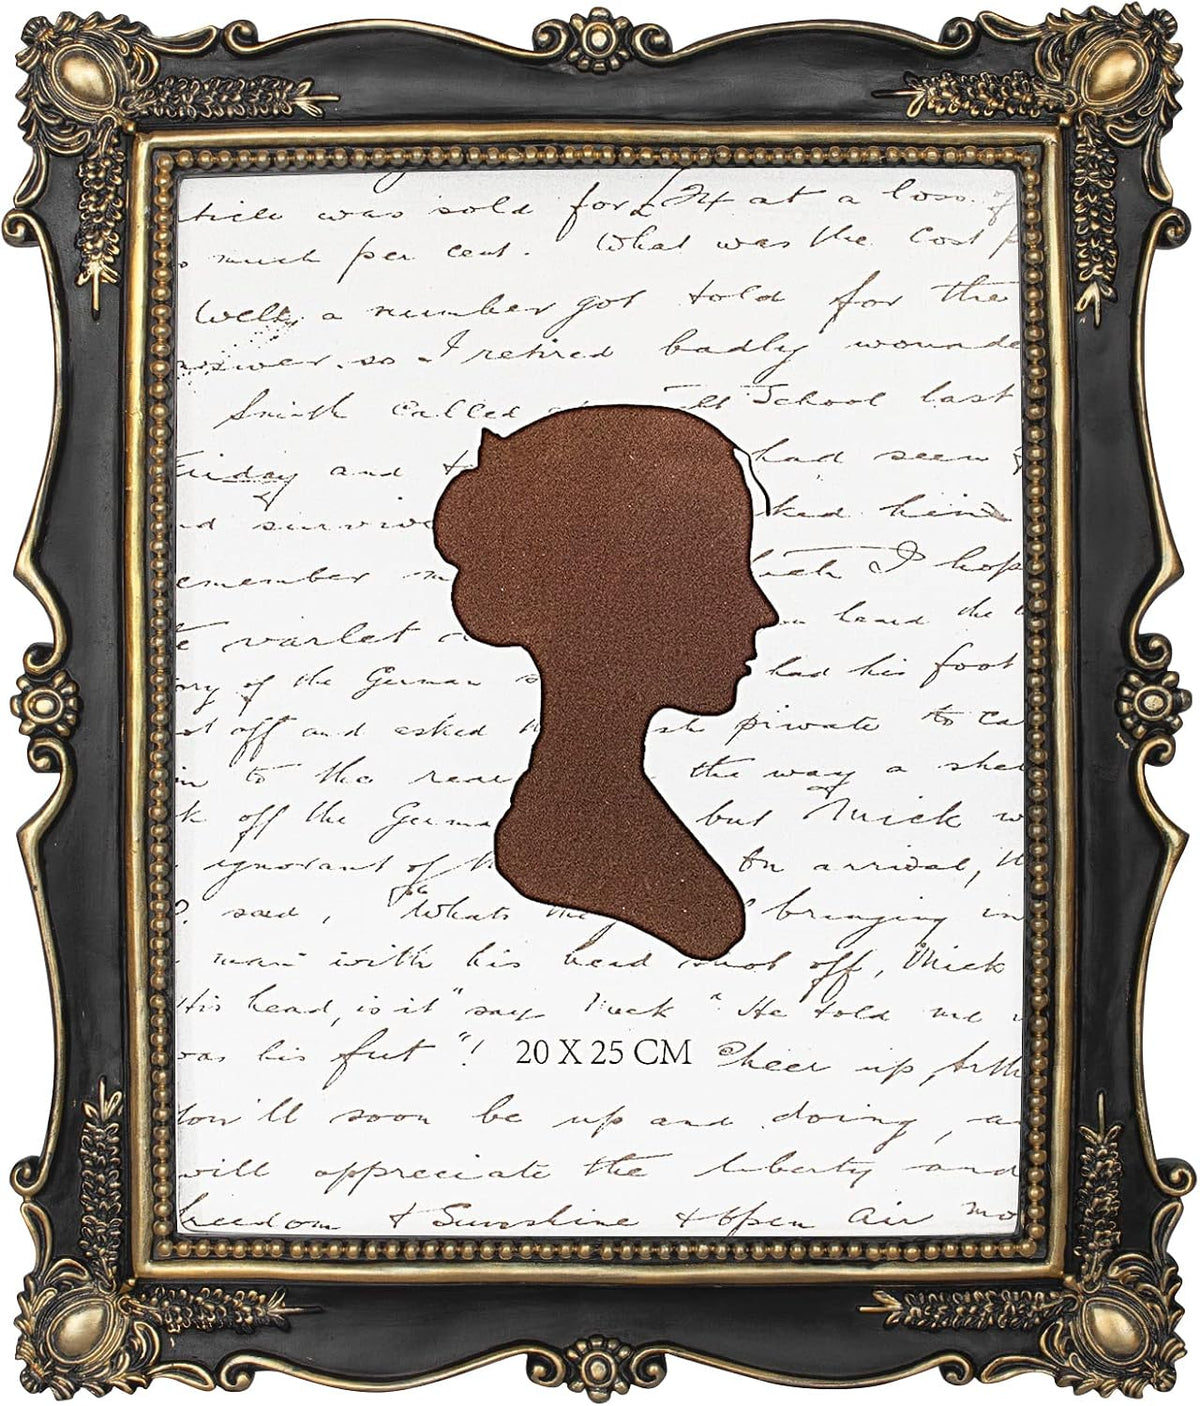 ticle was sold for £24 at a loss of
so much per cent. What was the Cost p
Well, a number got told for the
answer, so I retired badly wounde
Smith called at School last
Friday and had seen
nd surviv ked him
emember m I hop
e varlet heard the
ory of the German s had his foot
ot off and asked private to ca
in to the rear the way a she
k off the Germa but Mick w
ignorant of th On arrival, th
?, said, "Whats the bringing in
man with his head shot off, Mick
His head, is it" says Mick "He told me
was his feet"! 20 X 25 CM Cheer up, Arth
You'll soon be up and doing, an
will appreciate the liberty and
freedom & Sunshine & open air mo